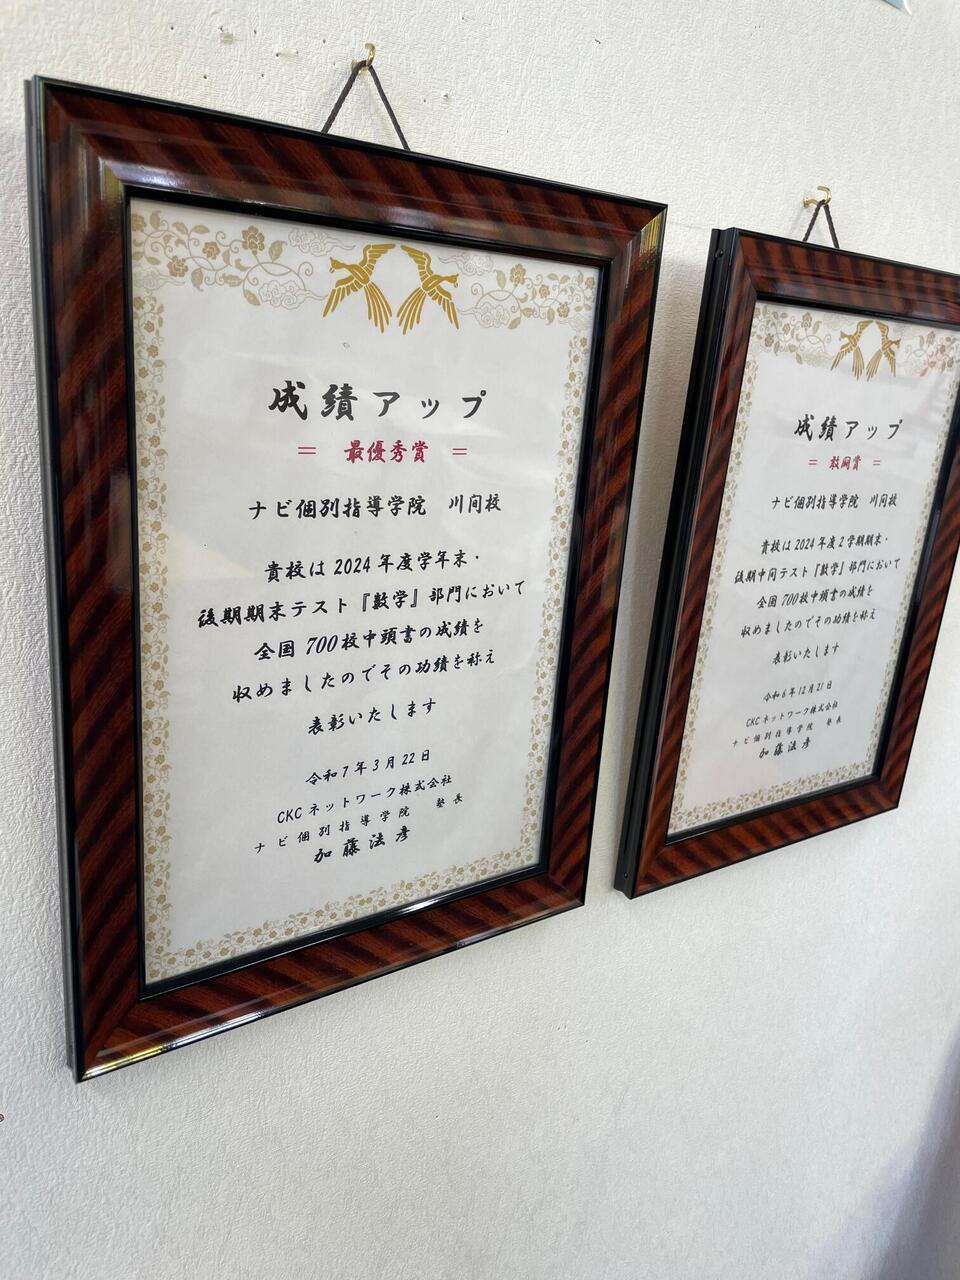 成績アップ
= 最優秀賞 =
ナビ個別指導学院 川間校
貴校は2024年度学年末・
後期期末テスト『数学』部門において
全国700校中頭書の成績を
収めましたのでその功績を称え
表彰いたします
令和7年3月22日
CKCネットワーク株式会社
ナビ個別指導学院 塾長
加藤法彦
成績アップ
= 敢闘賞 =
ナビ個別指導学院 川間校
貴校は2024年度2学期期末・
後期中間テスト『数学』部門において
全国700校中頭書の成績を
収めましたのでその功績を称え
表彰いたします
令和6年12月21日
CKCネットワーク株式会社
ナビ個別指導学院 塾長
加藤法彦